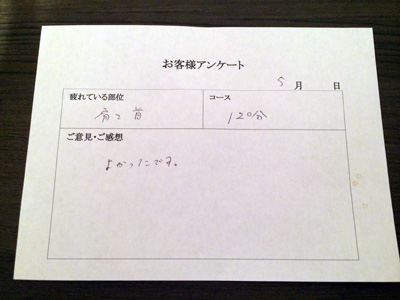 お客様アンケート
5月 日
疲れている部位
コース
肩と首
120分
ご意見・ご感想
よかったです。